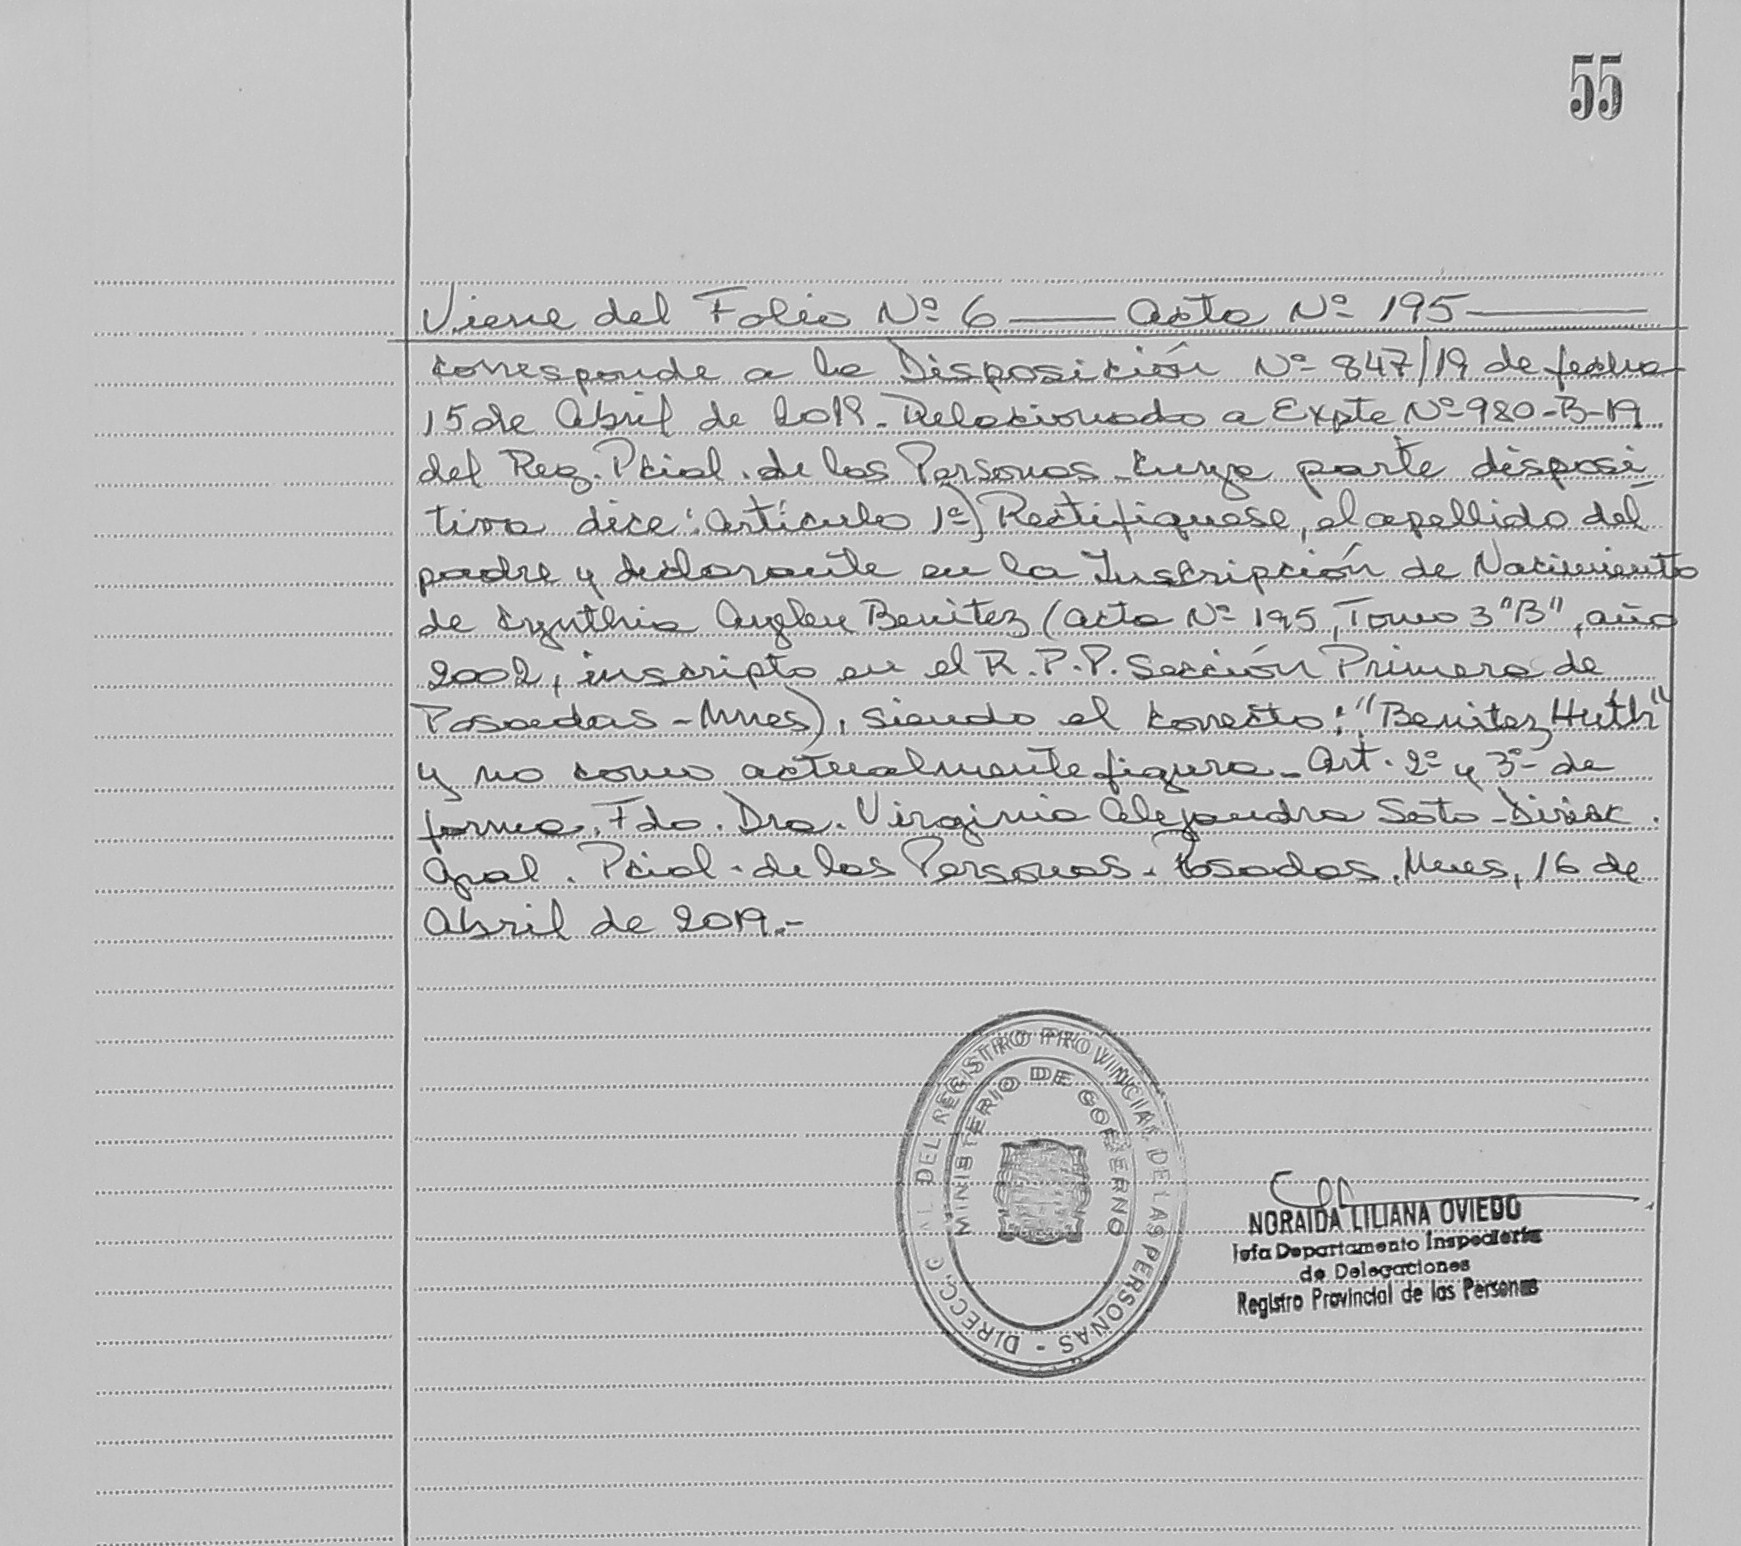 55
Viene del Folio Nº 6 —— Acta Nº 195 ——
corresponde a la Disposición Nº 847/19 de fecha
15 de Abril de 2019. Relacionado a Expte Nº 980-B-19
del Reg. Pcial. de las Personas. cuya parte disposi
tiva dice: Artículo 1º) Rectifíquese, el apellido del
padre y declarante en la Inscripción de Nacimiento
de Cynthia Benitez (acta Nº 195, Tomo 3 "B", año
2002, inscripto en el R.P.P. Sección Primera de
Posadas - Mnes), siendo el correcto: "Benitez Huth"
y no como actualmente figura. Art. 2º y 3º de
forma. Fdo. Dra. Virginia Alejandra Soto -
Gral. Pcial. de las Personas. Posadas, Mnes, 16 de
Abril de 2019.-
DIRECC. G AL DEL REGISTRO PROVINCIAL DE LAS PERSONAS -
MINISTERIO DE GOBIERNO
NORAIDA LILIANA OVIEDO
Jefa Departamento Inspectoria
de Delegaciones
Registro Provincial de las Personas